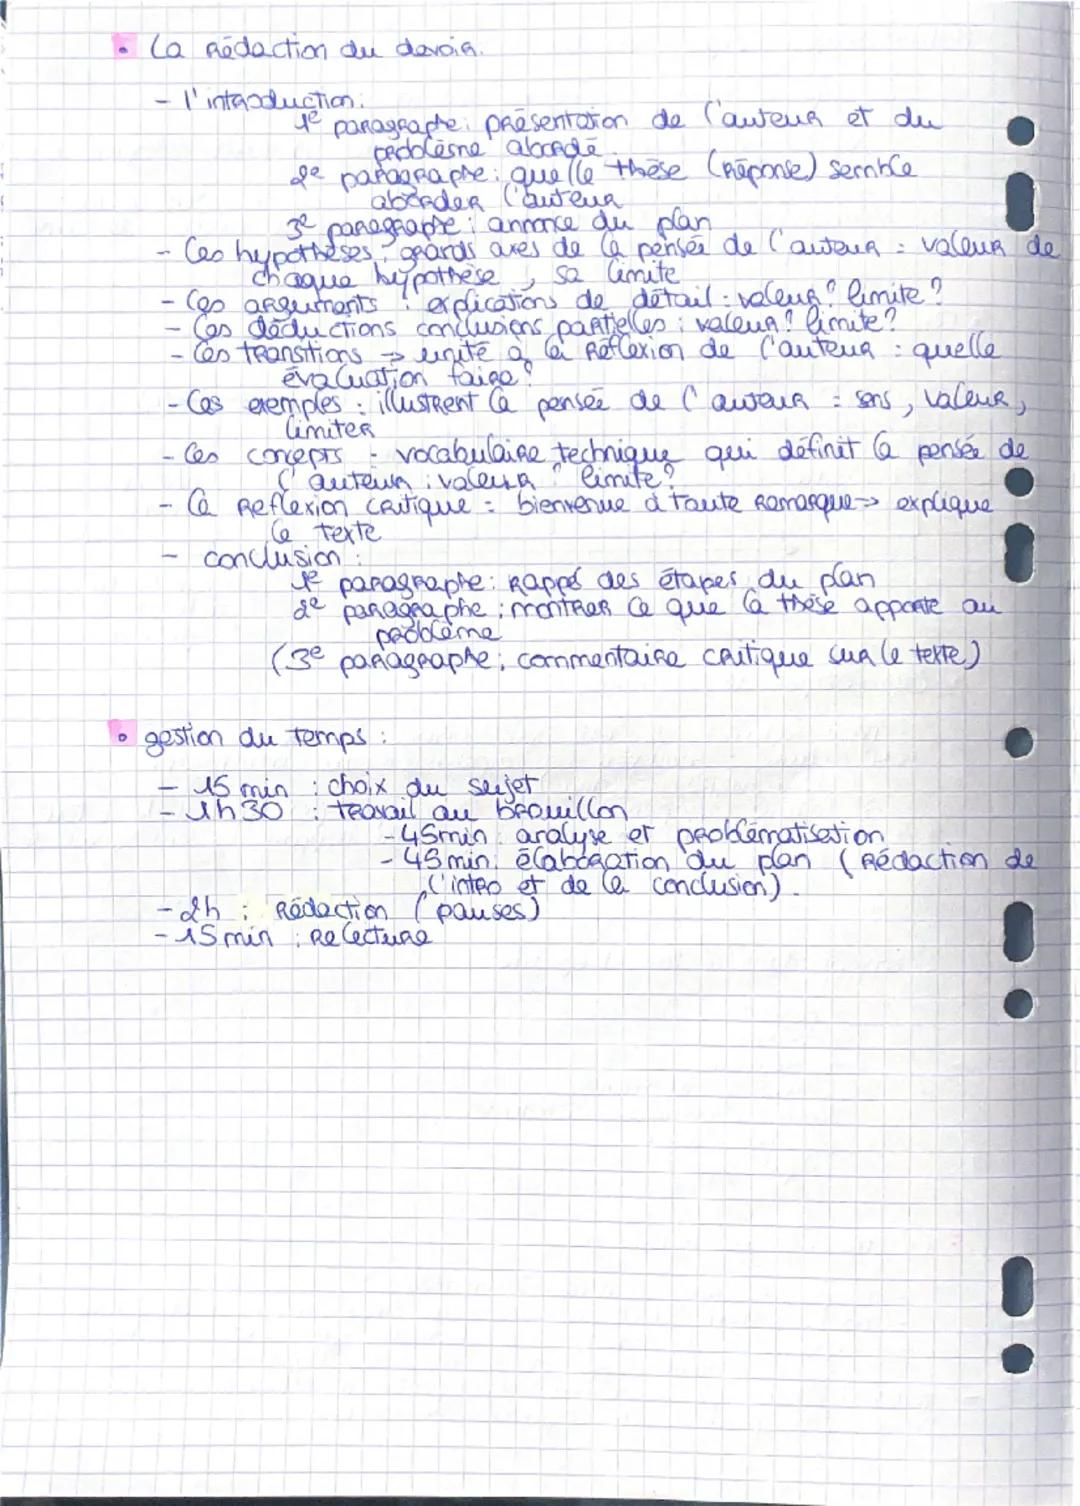 • La rédaction du devoir.
- l'introduction :
1e paragraphe : présentation de l'auteur et du
problème abordé.
2e paragraphe : quelle thèse (réponse) semble
aborder l'auteur
3e paragraphe : annonce du plan
- les hypothèses : grands axes de la pensée de l'auteur = valeur de
chaque hypothèse, sa limite
- les arguments : explications de détail : valeur? limite?
- les déductions conclusions partielles : valeur? limite?
- les transitions → unité à la réflexion de l'auteur : quelle
évaluation faire?
- les exemples : illustrent la pensée de l'auteur = sens, valeur,
limiter
- les concepts : vocabulaire technique qui définit la pensée de
l'auteur : valeur? limite?
- la réflexion critique = bienvenue à toute remarque => explique
le texte
- conclusion :
1e paragraphe : rappel des étapes du plan
2e paragraphe : montrer ce que la thèse apporte au
problème
(3e paragraphe : commentaire critique sur le texte)
• gestion du temps :
- 15 min : choix du sujet
- 1h30 : travail au brouillon
- 45min : analyse et problématisation
- 45min : élaboration du plan (rédaction de
l'intro et de la conclusion).
- 2h : rédaction (pauses)
- 15 min : relecture